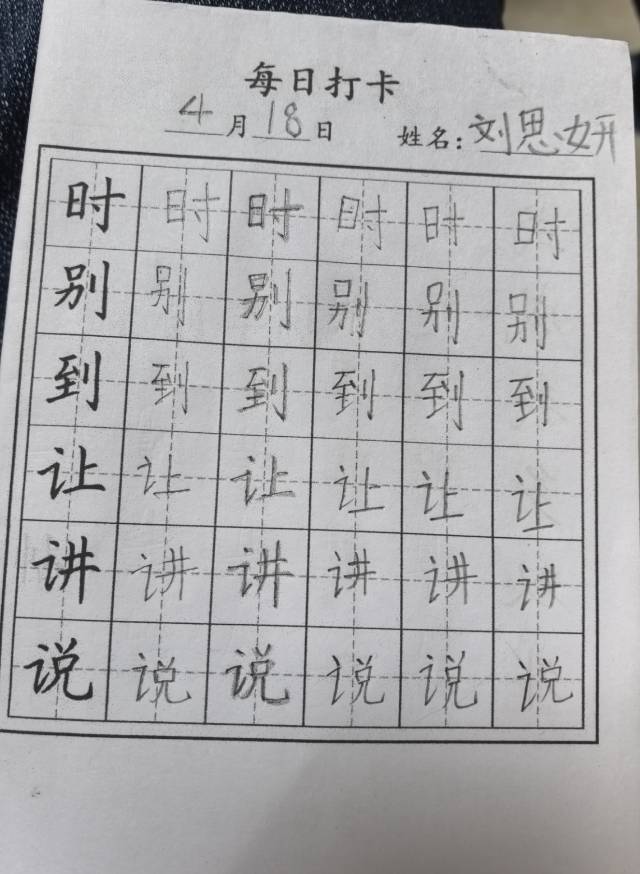 每日打卡
4月18日 姓名：刘思妍
时 时 时 时 时 时
别 别 别 别 别 别
到 到 到 到 到 到
让 让 让 让 让 让
讲 讲 讲 讲 讲 讲
说 说 说 说 说 说